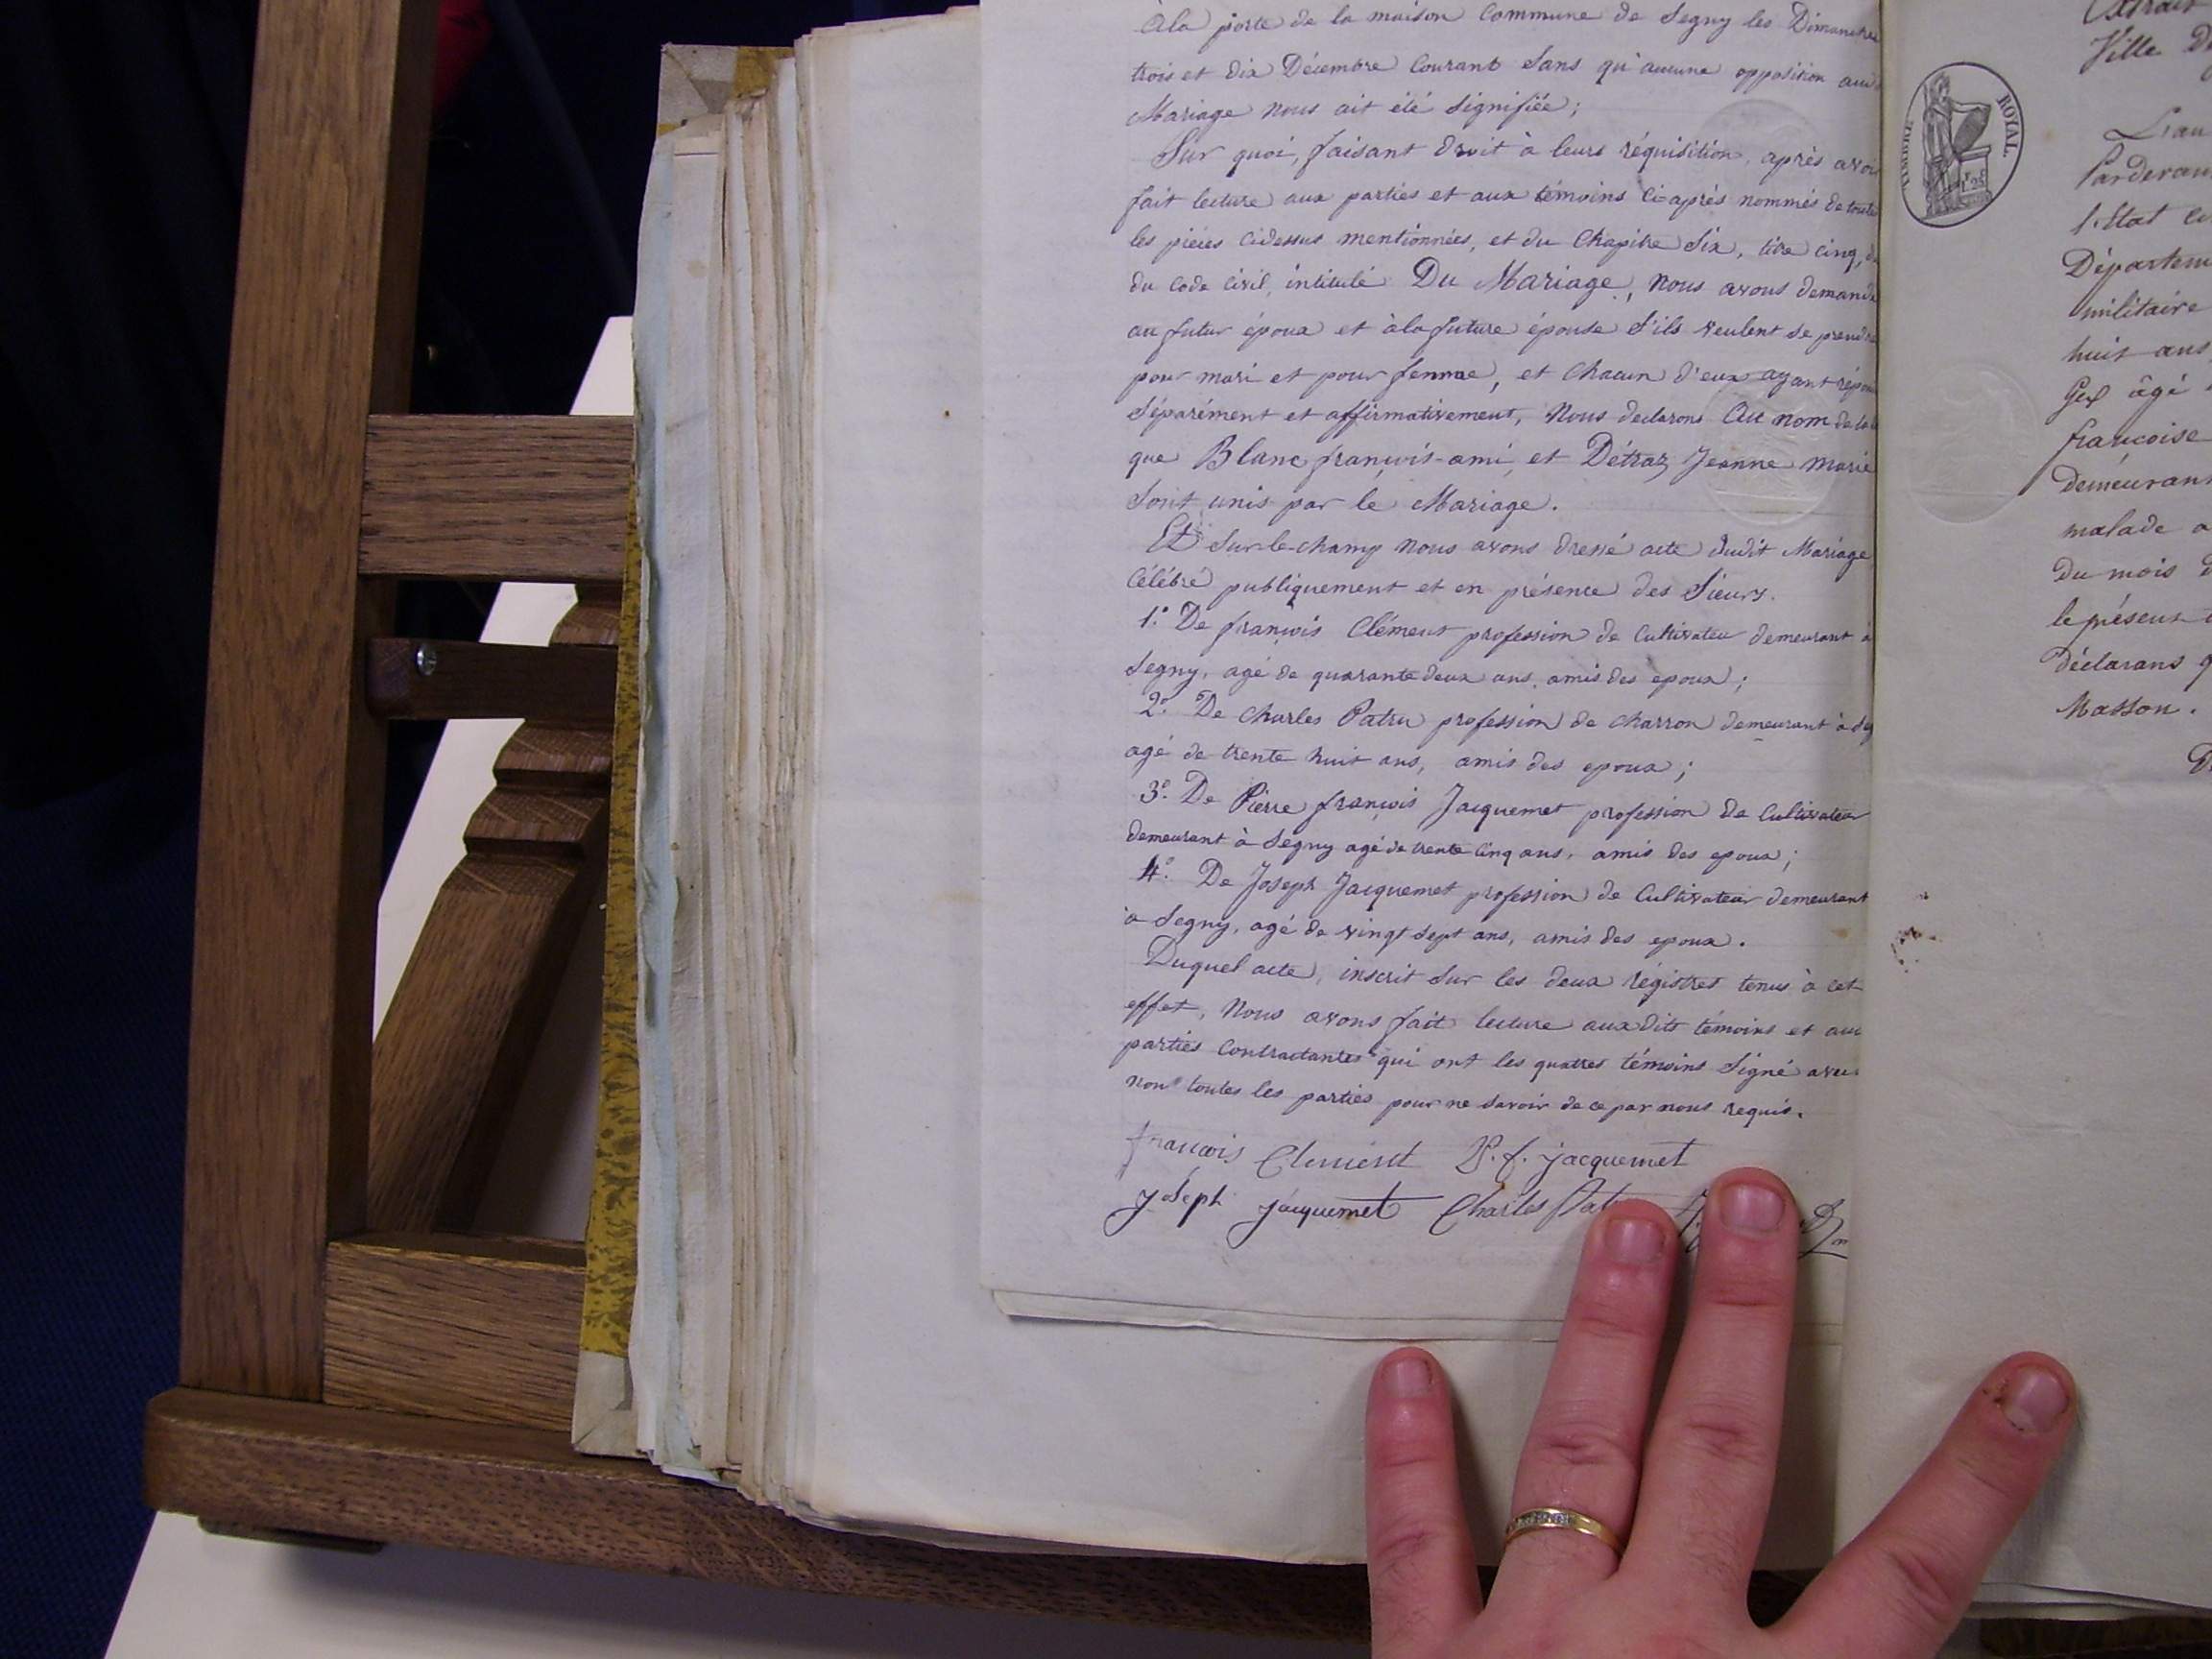 à la porte de la maison Commune de Segny les Dimanches
trois et dix Décembre Courant Sans qu'aucune opposition aud
Mariage nous ait été Signifiée;
Sur quoi, faisant droit à leurs réquisition, après avoi
fait lecture aux parties et aux témoins Ci-après nommés de toute
les pièces Cidessus mentionnées, et du Chapitre Six, titre cinq, d
du Code Civil, intitulé Du Mariage, Nous avons demandé
au futur époux et à la future épouse S'ils veulent se prendre
pour mari et pour femme, et Chacun d'eux ayant répon
Séparément et affirmativement, Nous declarons Au nom de la
que Blanc françois-ami, et Détraz Jeanne Marie
Sont unis par le Mariage.
Et Sur-le-champ Nous avons dressé acte dudit Mariage
Célébré publiquement et en présence des Sieurs.
1.° De françois Clément profession de Cultivateu demeurant à
Segny, agé de quarante deux ans, amis des epoux;
2.° De Charles Patru profession de Charron demeurant à Seg
agé de trente huit ans, amis des epoux;
3.° De Pierre françois Jacquemet profession de Cultivateur
demeurant à Segny agé de trente Cinq ans, amis des epoux;
4.° De Joseph Jacquemet profession de Cultivateur demeurant
à Segny, agé de vingt sept ans, amis des epoux.
Duquel acte, inscrit Sur les deux régistres tenus à cet
effet, Nous avons fait lecture aux dits témoins et aux
parties Contractantes qui ont les quatres témoins Signé avec
non toutes les parties pour ne savoir de ce par nous requis.
francois Clement P. f. jacquemet
Joseph jacquemet Charles Pat
TIMBRE ROYAL
1F 25C
Extrait
Ville D
L'an
Pardevan
l'Etat Ci
Départem
militaire
huit ans
Gex âgé
françoise
Demeuran
malade a
Du mois d
le présent
déclarans q
Masson.
D